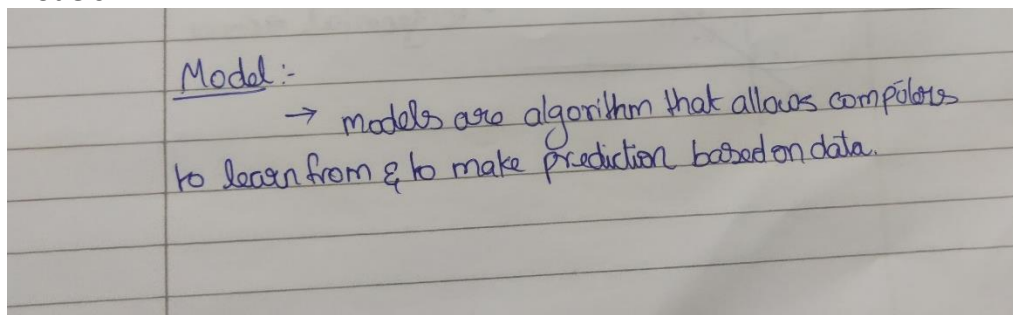 Model :-
→ models are algorithm that allows compilers
to learn from & to make prediction based on data.